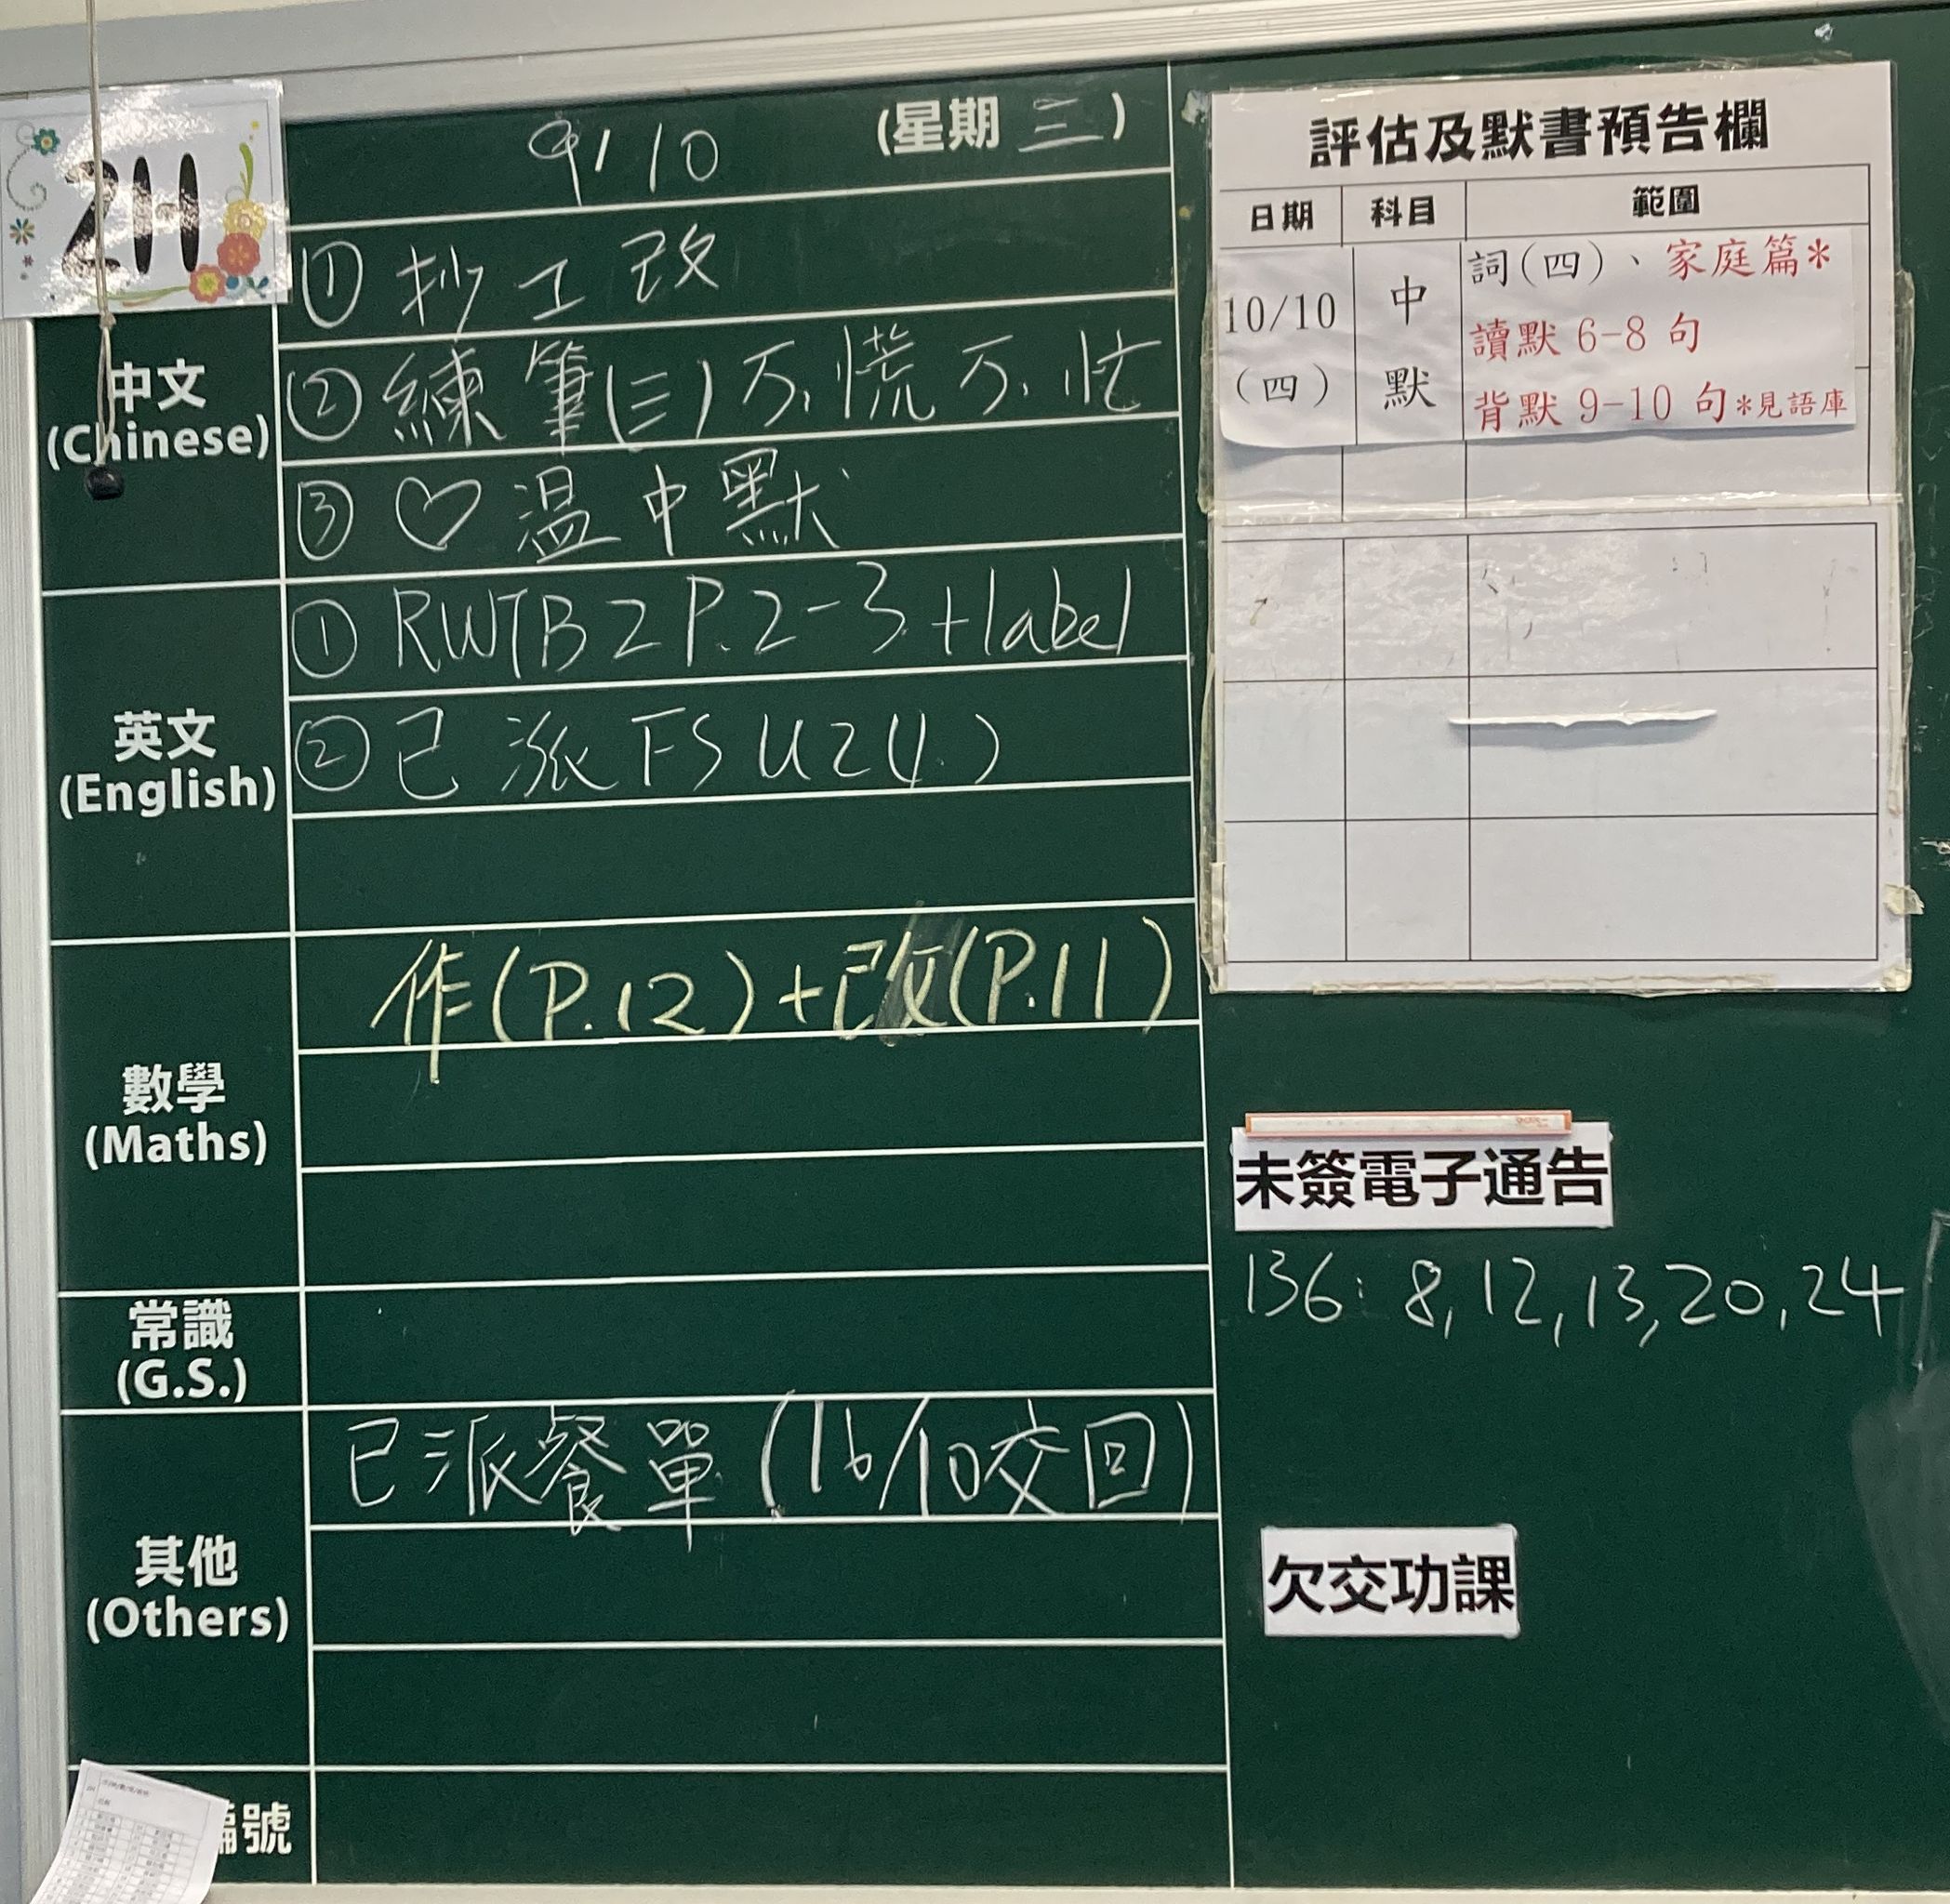 2H
9/10 (星期三)
中文
(Chinese)
① 抄工改
② 練筆(三)不慌不忙
③ ♡溫中默
英文
(English)
① RWTB2 P.2-3 +label
② 已派FSU2(4)
數學
(Maths)
作(P.12)+改(P.11)
常識
(G.S.)
其他
(Others)
已派餐單(16/10交回)
編號
評估及默書預告欄
日期 科目 範圍
10/10
(四)
中
默
詞(四)、家庭篇*
讀默 6-8 句
背默 9-10 句*見語庫
未簽電子通告
136: 8, 12, 13, 20, 24
欠交功課